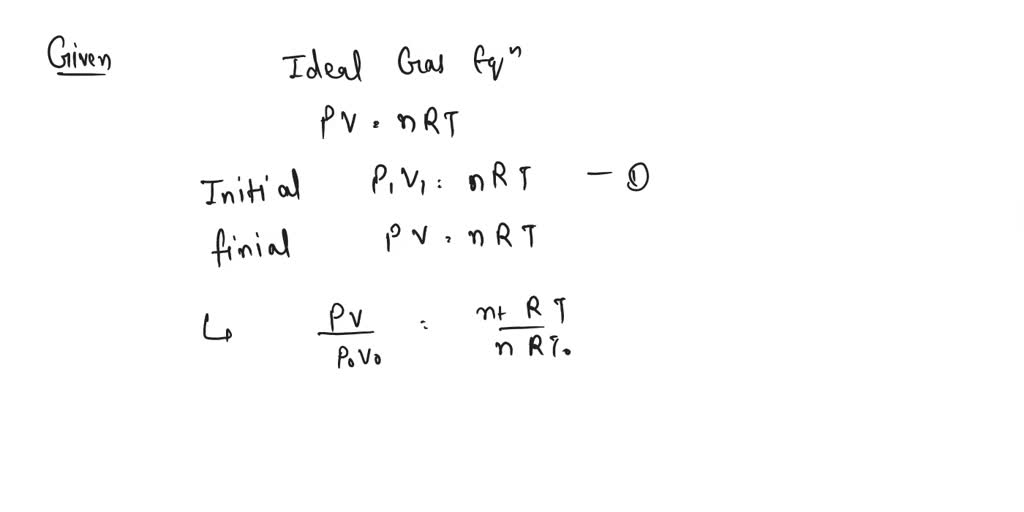 Given
Ideal Gas Eqⁿ
PV = nRT
Initial P₁V₁ = nRT — ①
finial PV = nRT
↳ PV / P₀V₀ = n₊ RT / n RT₀